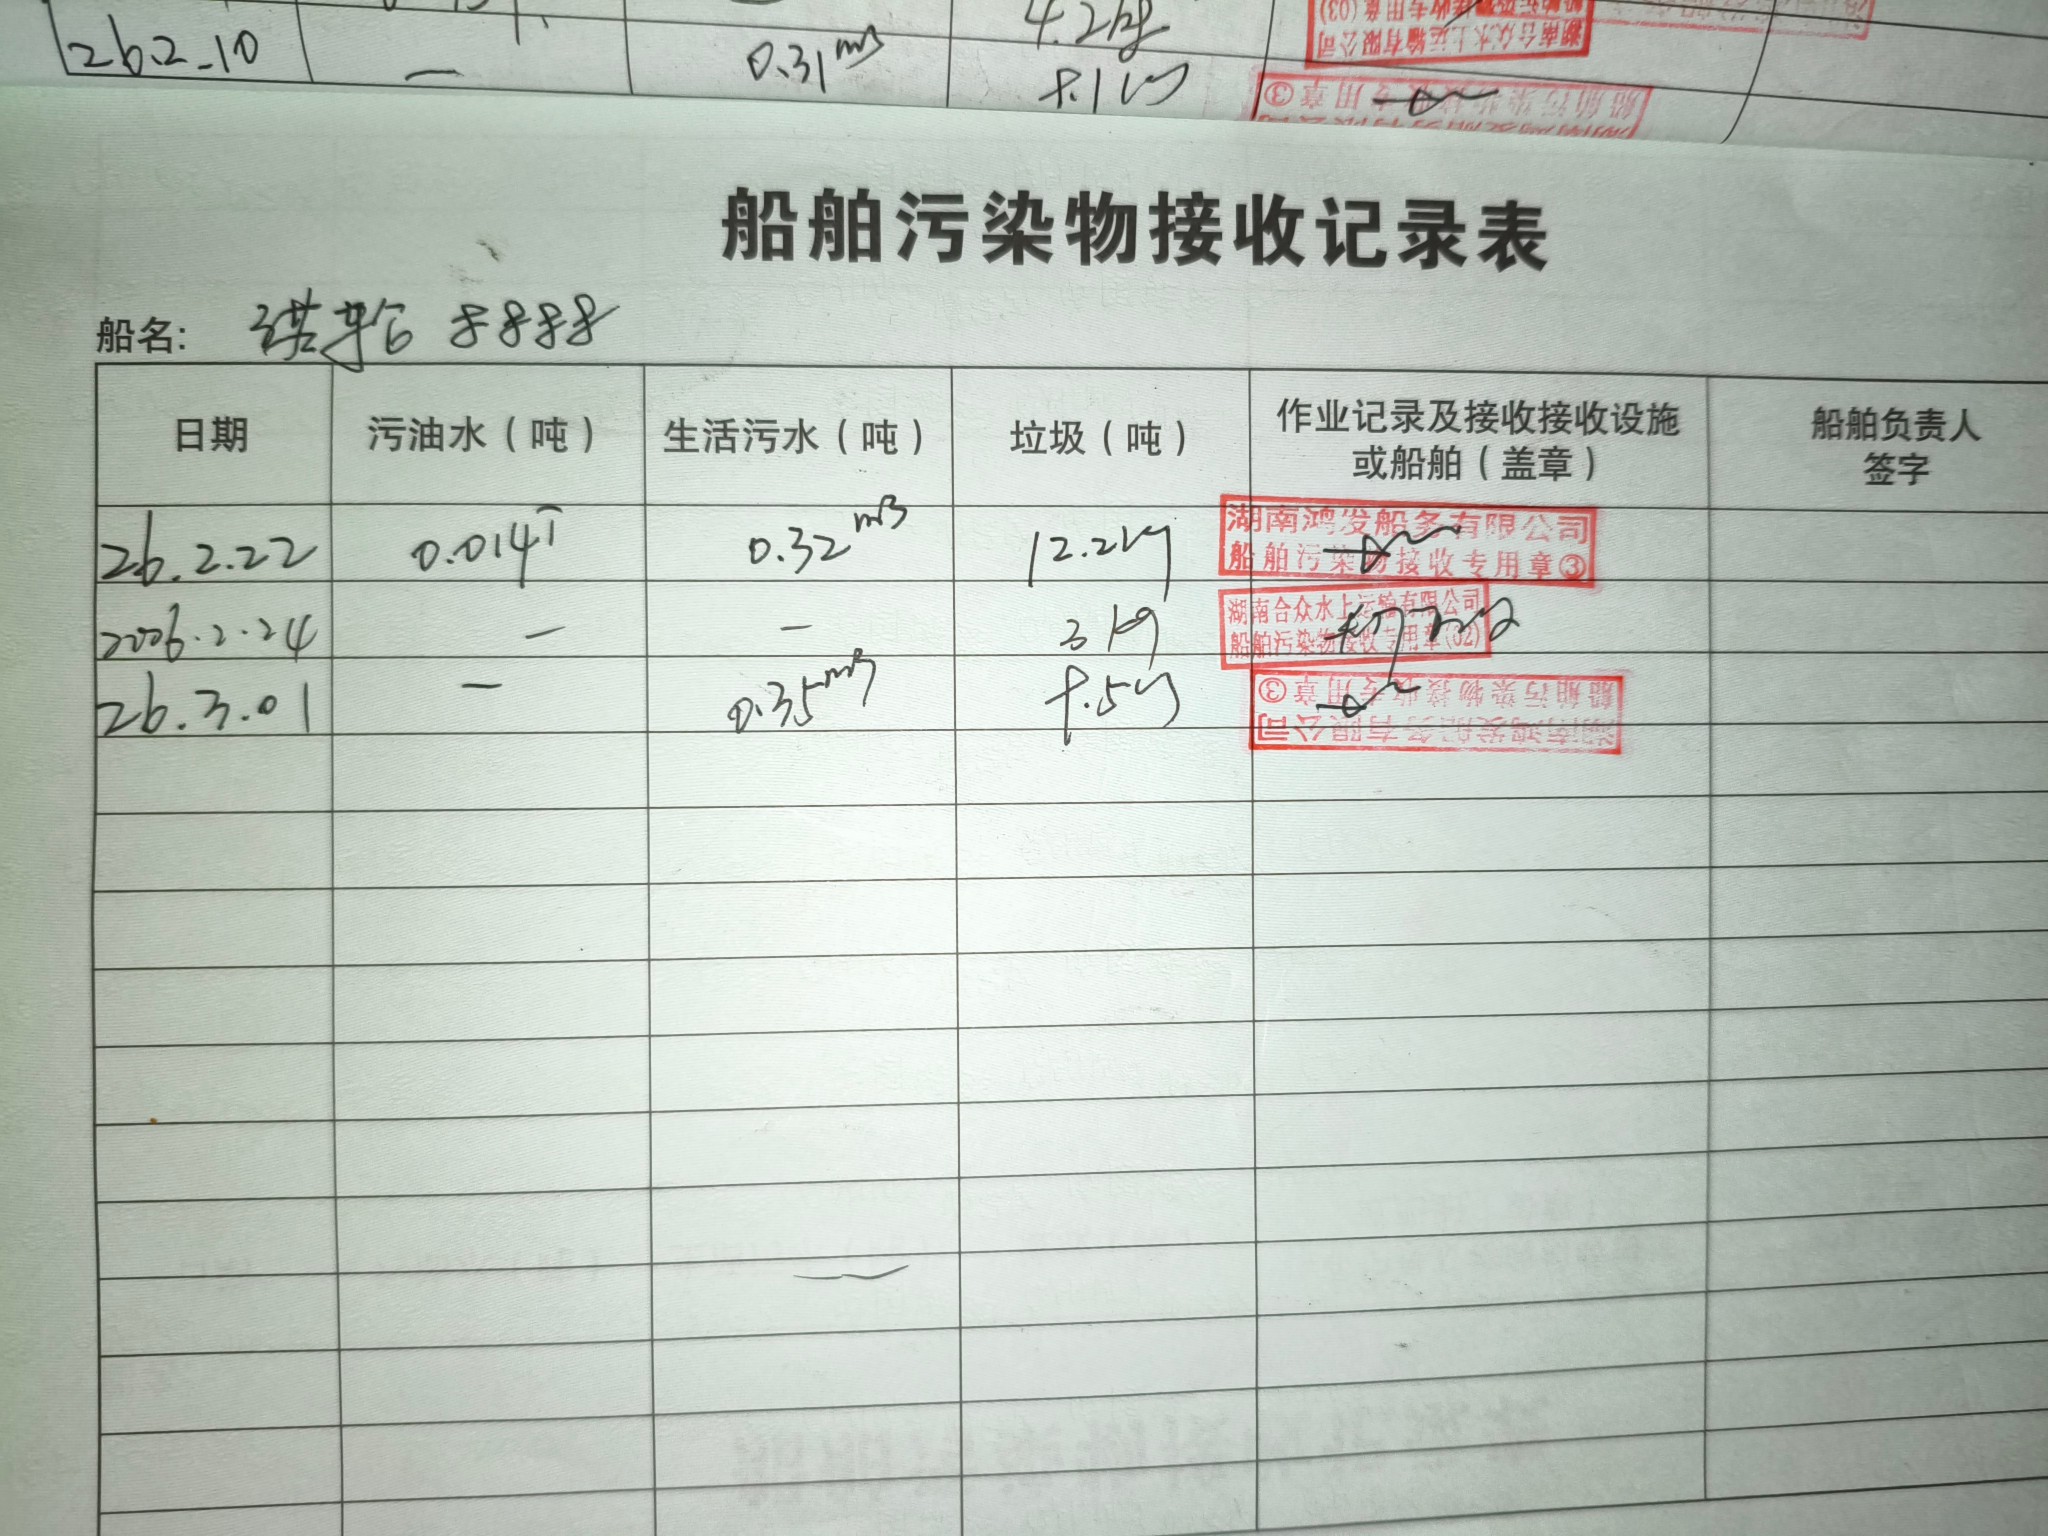 26.2.10 — 0.31m³ 8.1kg
4.2kg
船舶污染物接收记录表
船名: 8888
日期 污油水（吨） 生活污水（吨） 垃圾（吨） 作业记录及接收接收设施或船舶（盖章） 船舶负责人签字
26.2.22 0.014T 0.32m³ 12.2kg 湖南鸿发船务有限公司
船舶污染物接收专用章③
2006.2.24 — — 3kg 湖南合众水上运输有限公司
船舶污染物接收专用章(02)
26.3.01 — 0.35m³ 8.5kg 湖南鸿发船务有限公司
船舶污染物接收专用章③